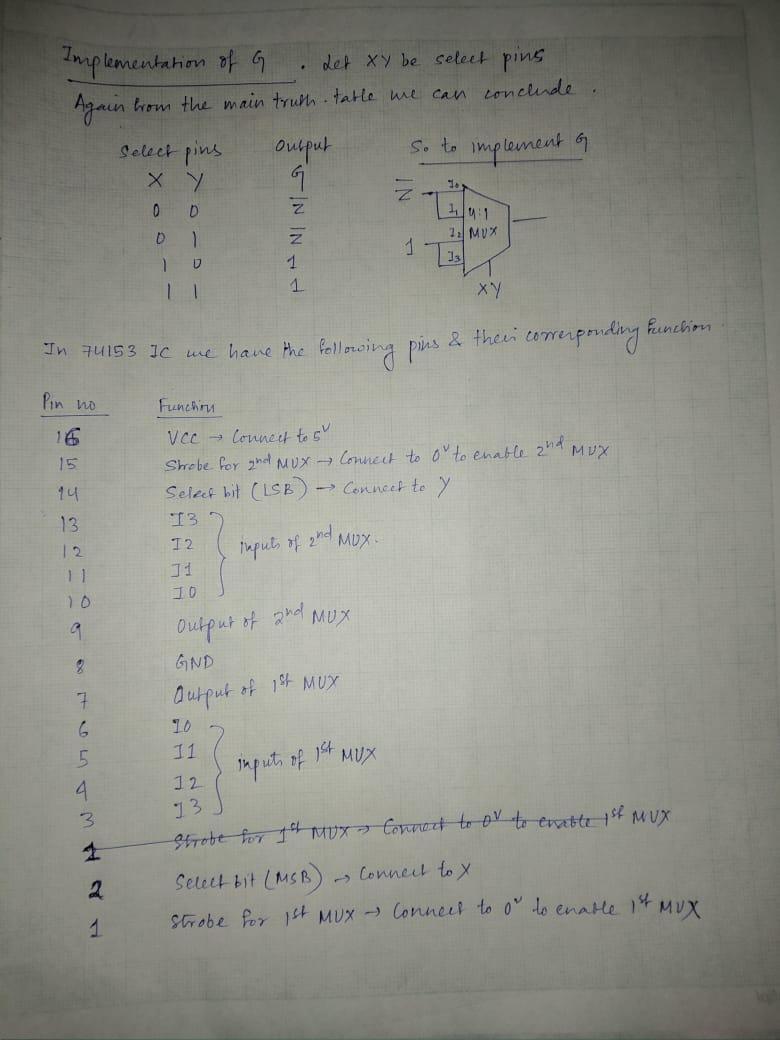 Implementation of G . Let XY be select pins
Again from the main truth-table we can conclude .
Select pins Output So to implement G
X Y G
0 0 Z̅
0 1 Z̅
1 0 1
1 1 1
Z̅ I0
I1 4:1
I2 MUX
1 I3
XY
In 74153 IC we have the following pins & their corresponding function
Pin no Function
16 VCC → Connect to 5V
15 Strobe for 2nd MUX → Connect to 0V to enable 2nd MUX
14 Select bit (LSB) → Connect to Y
13 I3
12 I2 inputs of 2nd MUX.
11 I1
10 I0
9 Output of 2nd MUX
8 GND
7 Output of 1st MUX
6 I0
5 I1 inputs of 1st MUX
4 I2
3 I3
1 Strobe for 1st MUX → Connect to 0V to enable 1st MUX
2 Select bit (MSB) → Connect to X
1 Strobe for 1st MUX → Connect to 0V to enable 1st MUX